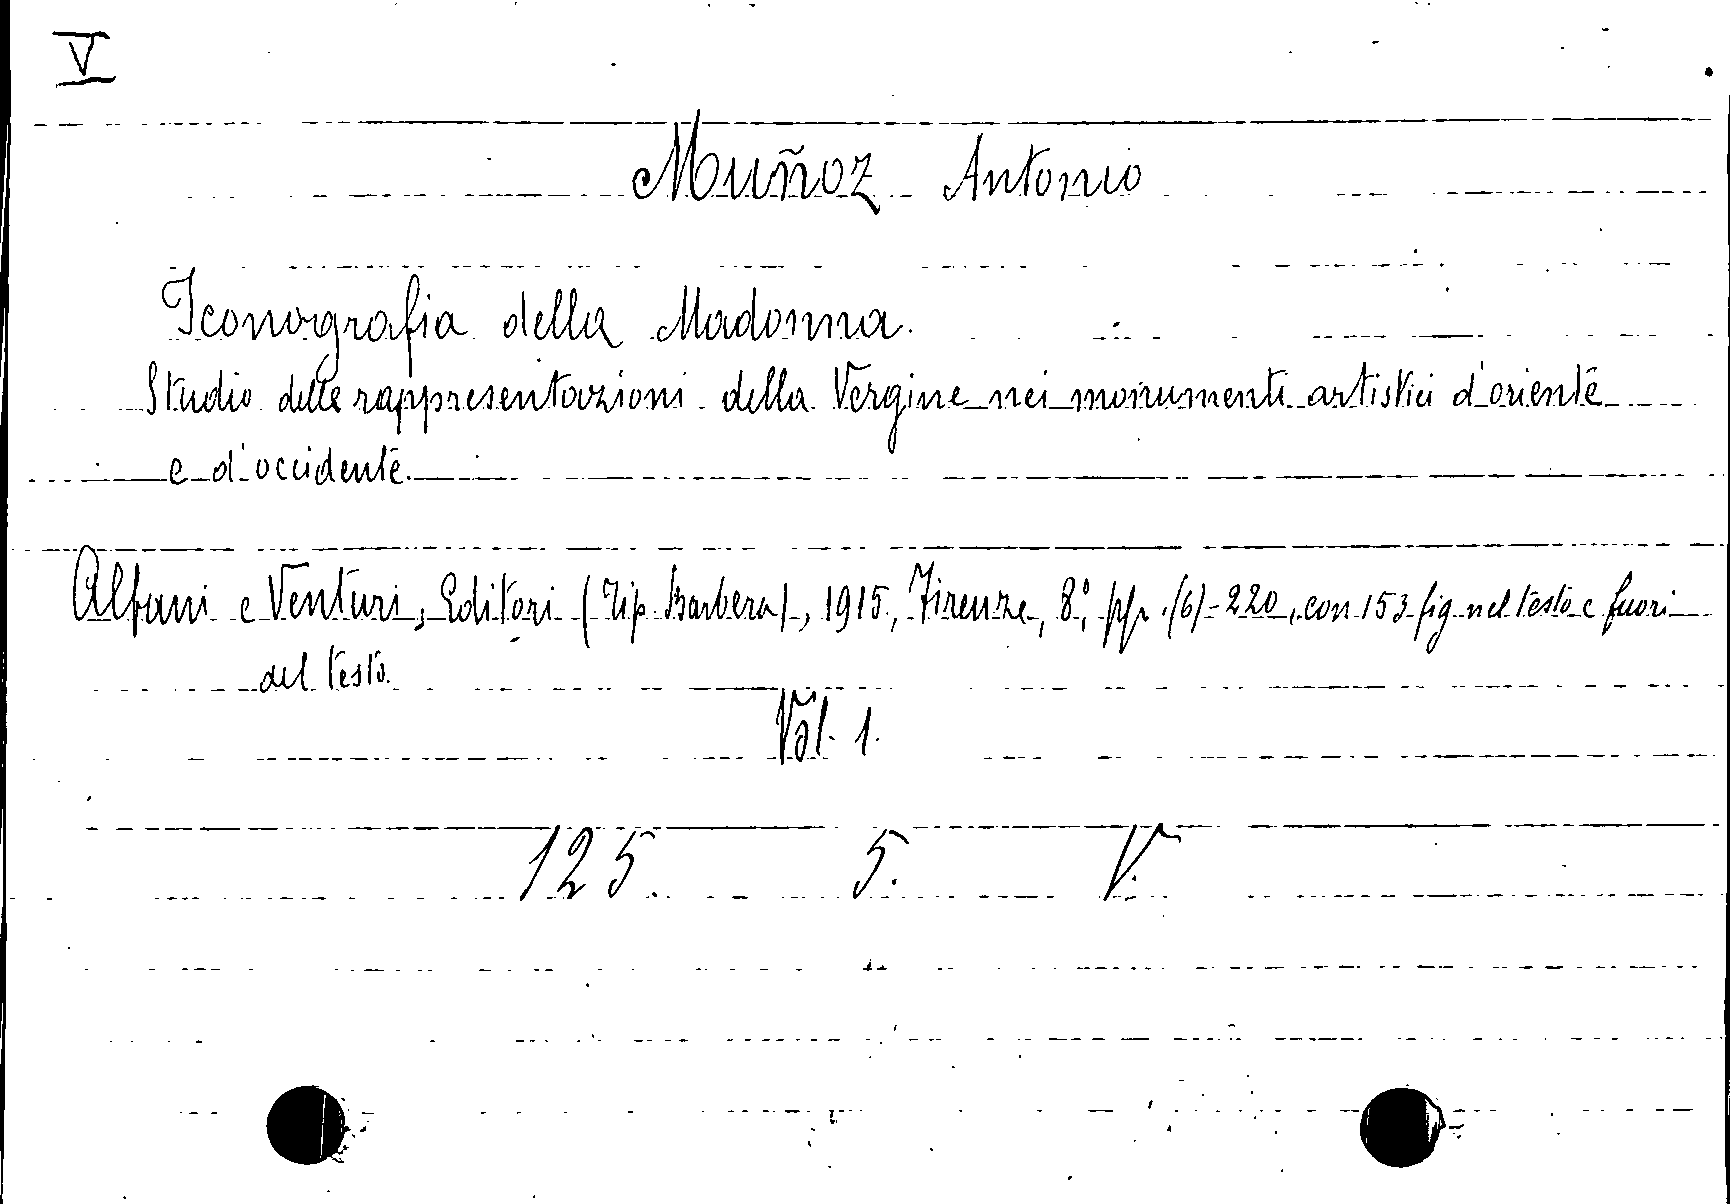 V
Muñoz Antonio
Iconografia della Madonna.
Studio delle rappresentazioni della Vergine nei monumenti artistici d'oriente
e d'occidente.
Alfani e Venturi, Editori (Tip. Barbera), 1915, Firenze, 8°, pp. (6)-220, con 153 fig nel testo e fuori
del testo.
Vol. 1.
125. 5. V.